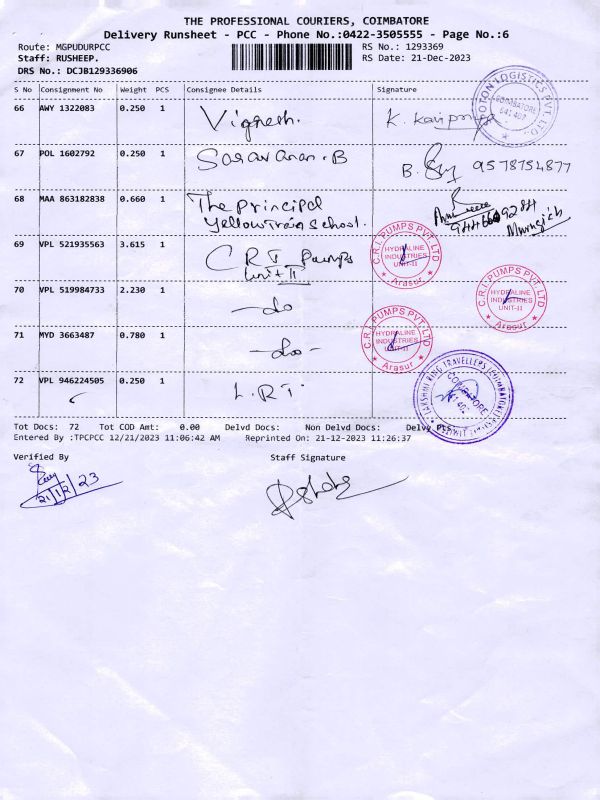 THE PROFESSIONAL COURIERS, COIMBATORE
Delivery Runsheet - PCC - Phone No.:0422-3505555 - Page No.:6
Route: MGPUDURPCC RS No.: 1293369
Staff: RUSHEEP. RS Date: 21-Dec-2023
DRS No.: DCJB129336906
S No Consignment No Weight PCS Consignee Details Signature
66 AWY 1322083 0.250 1 Vignesh. K. Kavipriya
67 POL 1602792 0.250 1 Saravanan.B B. 9578754877
68 MAA 863182838 0.660 1 The principal
Yellow Train School.
69 VPL 521935563 3.615 1 C R I Pumps
Unit II
70 VPL 519984733 2.230 1 -do
71 MYD 3663487 0.780 1 -do-
72 VPL 946224505 0.250 1 L.R.T.
LOGISTICS PVT. LTD.
COIMBATORE
641 407
C.R.I. PUMPS PVT. LTD
HYDRALINE
INDUSTRIES
UNIT-II
Arasur
C.R.I. PUMPS PVT. LTD
HYDRALINE
INDUSTRIES
UNIT-II
Arasur
C.R.I. PUMPS PVT. LTD
HYDRALINE
INDUSTRIES
UNIT-II
Arasur
COIMBATORE
Tot Docs: 72 Tot COD Amt: 0.00 Delvd Docs: Non Delvd Docs: Delvy Pts:
Entered By :TPCPCC 12/21/2023 11:06:42 AM Reprinted On: 21-12-2023 11:26:37
Verified By Staff Signature
21/12/23